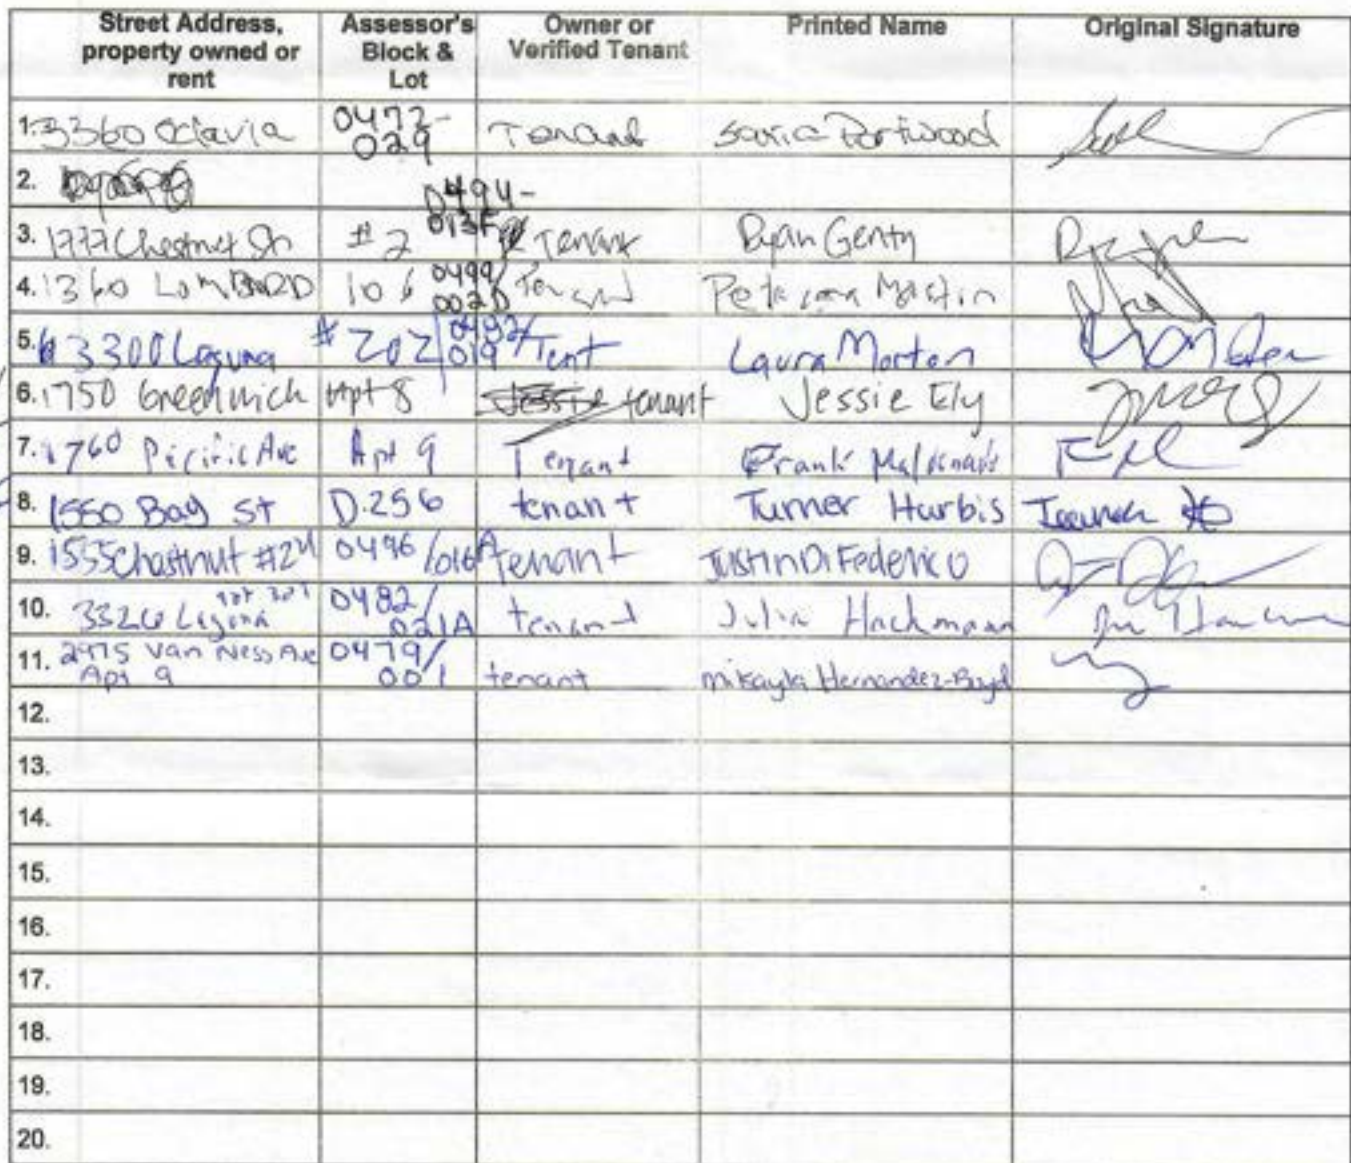 Street Address, property owned or rent
Assessor's Block & Lot
Owner or Verified Tenant
Printed Name
Original Signature
1. 3360 Octavia 0472-029 Tenant Portwood
2. 0494-
3. 1777 Chestnut St #2 013F Tenant Ryan Genty
4. 1360 LOMBARD 106 0499/002D Tenant Martin
5. 3300 Laguna #202 0482/019 Tent Laura Morton
6. 1750 Greenwich Apt 8 Jessie tenant Jessie Ely
7. 1760 Pacific Ave Apt 9 Tenant Frank Maldonado
8. 1550 Bay St D.256 tenant Turner Harbis
9. 1555 Chastnut #24 0496/016A tenant Justin DiFederico
10. 3326 Laguna 0482/021A tenant Julia Hackmann
11. 2975 Van Ness Ave Apt 9 0479/001 tenant mikayla Hernandez-Boyd
12.
13.
14.
15.
16.
17.
18.
19.
20.